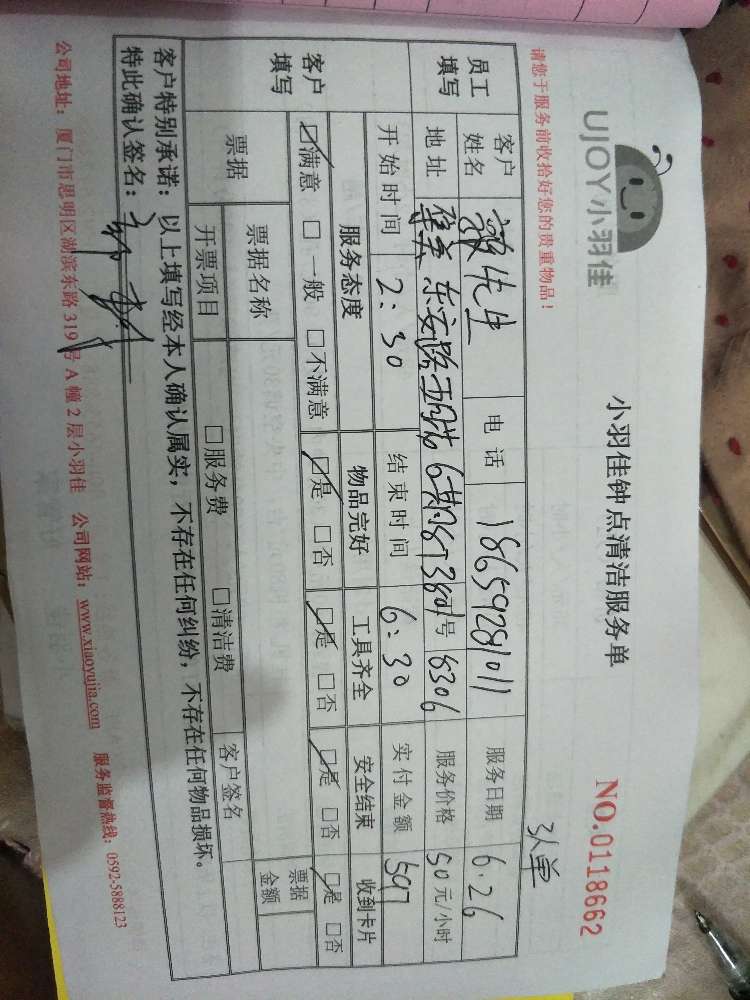 UJOY小羽佳
小羽佳钟点清洁服务单
NO.0118662
请您于服务前收拾好您的贵重物品！
3人单
员工填写
客户姓名 先生 电话 18659281011 服务日期 6.26
地址 6期 号 8306 服务价格 50元/小时
开始时间 2:30 结束时间 6:30 实付金额 597
客户填写
服务态度 物品完好 工具齐全 安全结束 收到卡片
☑满意 □一般 □不满意 ☑是 □否 ☑是 □否 ☑是 □否 ☑是 □否
票据 票据名称 票据金额
开票项目 □服务费 □清洁费 客户签名
客户特别承诺：以上填写经本人确认属实，不存在任何纠纷，不存在任何物品损坏。
特此确认签名：
公司地址：厦门市思明区湖滨东路319号A幢2层小羽佳 公司网站：www.xiaoyujia.com 服务监督热线：0592-5888123